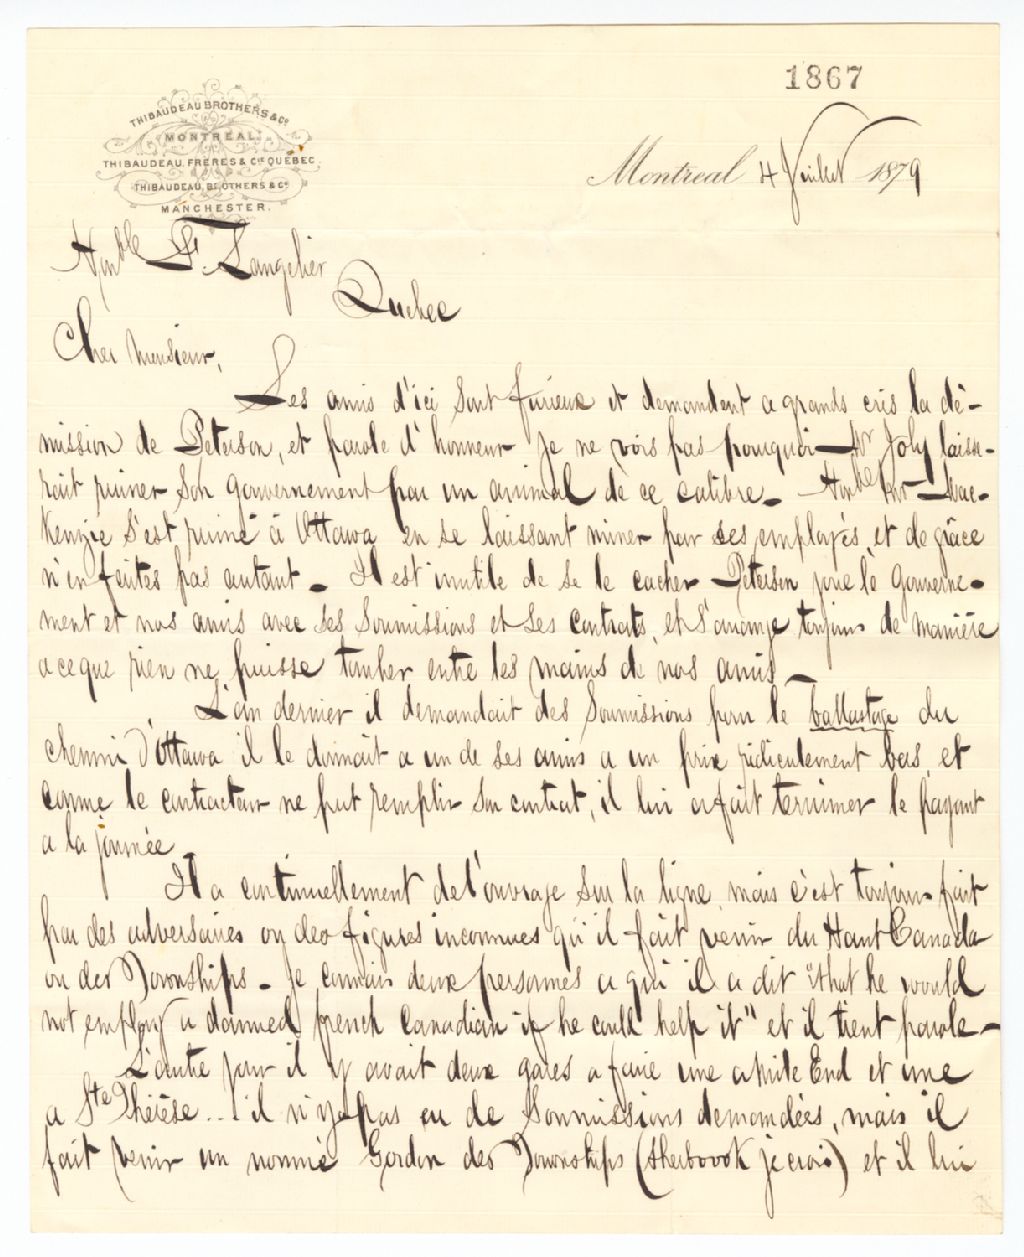 1867
THIBAUDEAU BROTHERS & Co.
MONTREAL.
THIBAUDEAU, FRÈRES & Cie QUÉBEC.
THIBAUDEAU, BROTHERS & Co.
MANCHESTER.
Montreal 4 Juillet 1879
Honble F. Langelier
Quebec
Cher Monsieur,
Les amis d'ici sont furieux et demandent a grands cris la dé-
mission de Peterson, et parole d'honneur je ne vois pas pourquoi Mr Joly laisse-
rait ruiner son gouvernement par un animal de ce calibre. Honble Mr Mac-
Kenzie s'est ruiné à Ottawa en se laissant miner par ses employés, et de grâce
n'en faites pas autant. Il est inutile de se le cacher Peterson joue le gouverne-
ment et nos amis avec ses soumissions et ses contrats, et s'arrange toujours de manière
a ce que rien ne puisse tomber entre les mains de nos amis.
L'an dernier il demandait des soumissions pour le ballastage du
chemin d'Ottawa il le donnait a un de ses amis a un prix ridiculement bas, et
comme le contracteur ne put remplir son contrat, il lui a fait terminer le payant
a la journée.
Il a continuellement de l'ouvrage sur la ligne, mais c'est toujours fait
par des adversaires ou des figures inconnues qu'il fait venir du Haut Canada
ou des Townships. Je connais deux personnes a qui il a dit "that he would
not employ a damned french Canadian if he could help it" et il tient parole.
L'autre jour il y avait deux gares a faire une a Mile End et une
a Ste Thérèse... il n'y a pas eu de soumissions demandées, mais il
fait venir un nommé Gordon des Townships (Sherbrook je crois) et il lui